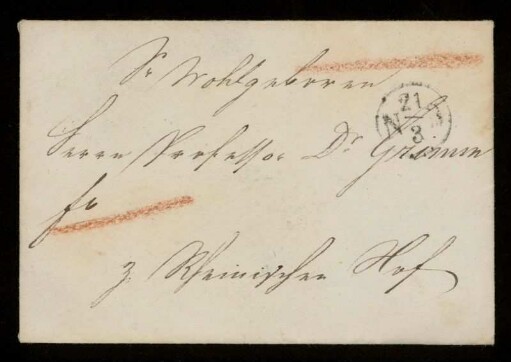 Sr Wohlgeboren
21
N 3
Herrn Professor Dr Grimm
fr
z. Rheinischen Hof